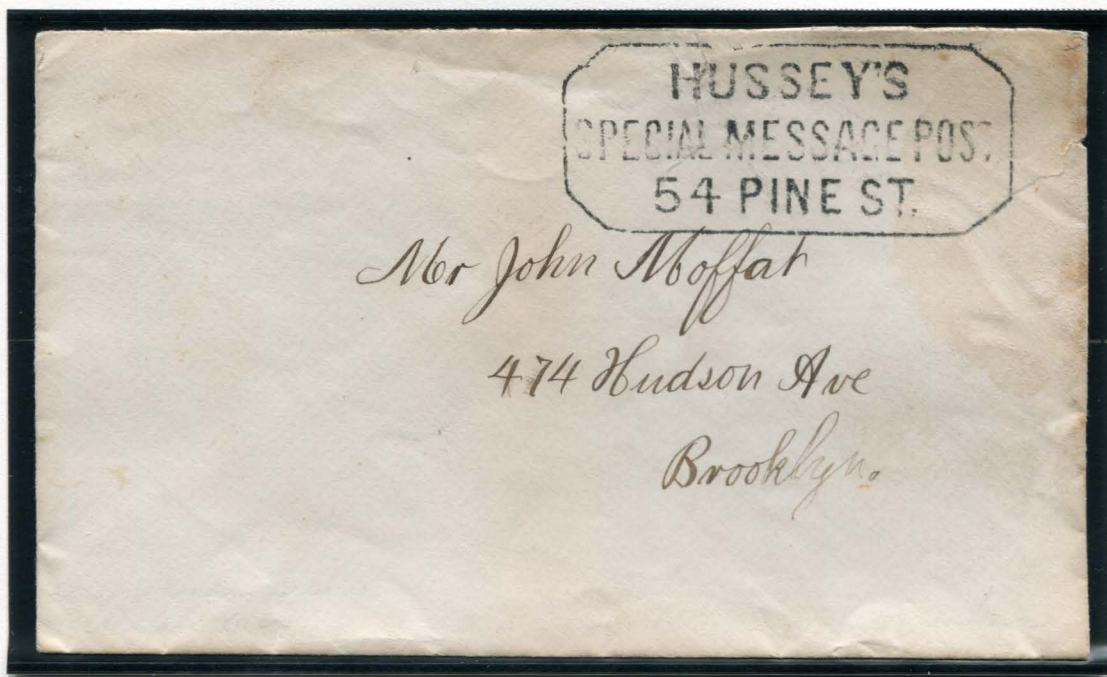 HUSSEY'S
SPECIAL MESSAGE POST
54 PINE ST.
Mr John Moffat
474 Hudson Ave
Brooklyn.